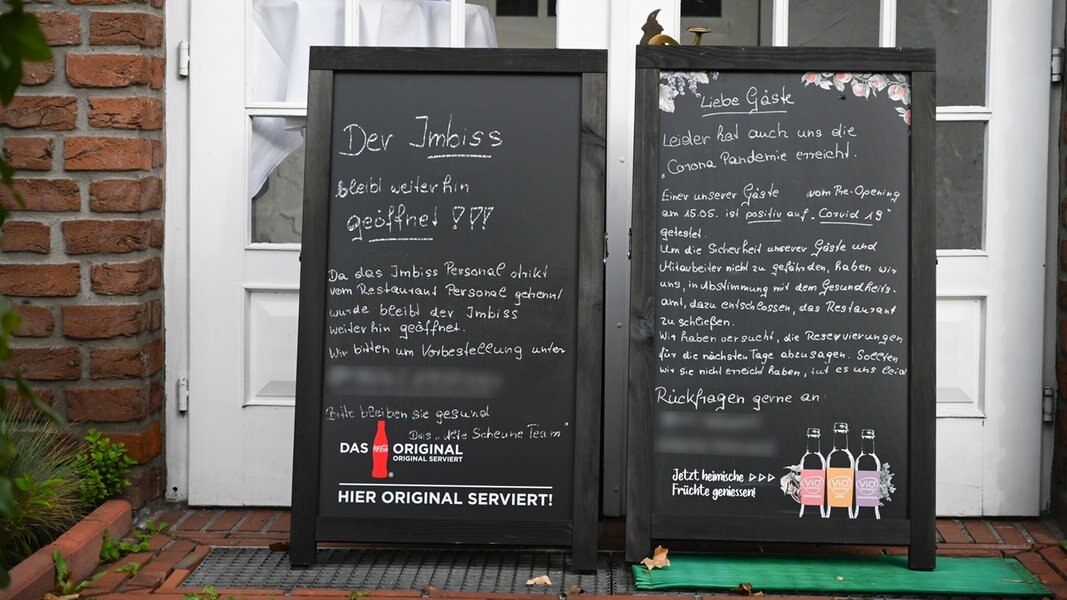 Der Imbiss
bleibt weiterhin
geöffnet !!!
Da das Imbiss Personal strikt
vom Restaurant Personal getrennt
wurde bleibt der Imbiss
weiterhin geöffnet.
Wir bitten um Vorbestellung unter
Bitte bleiben sie gesund
Das "Alte Scheune Team"
DAS ORIGINAL
ORIGINAL SERVIERT
HIER ORIGINAL SERVIERT!
Liebe Gäste
Leider hat auch uns die
Corona Pandemie erreicht.
Einer unserer Gäste vom Pre-Opening
am 15.05. ist positiv auf "Corvid 19"
getestet.
Um die Sicherheit unserer Gäste und
Mitarbeiter nicht zu gefährden, haben wir
uns, in Abstimmung mit dem Gesundheits-
amt, dazu entschlossen, das Restaurant
zu schließen.
Wir haben versucht, die Reservierungen
für die nächsten Tage abzusagen. Sollten
wir sie nicht erreicht haben, tut es uns leid
Rückfragen gerne an:
Jetzt heimische
Früchte geniessen!
ViO ViO ViO